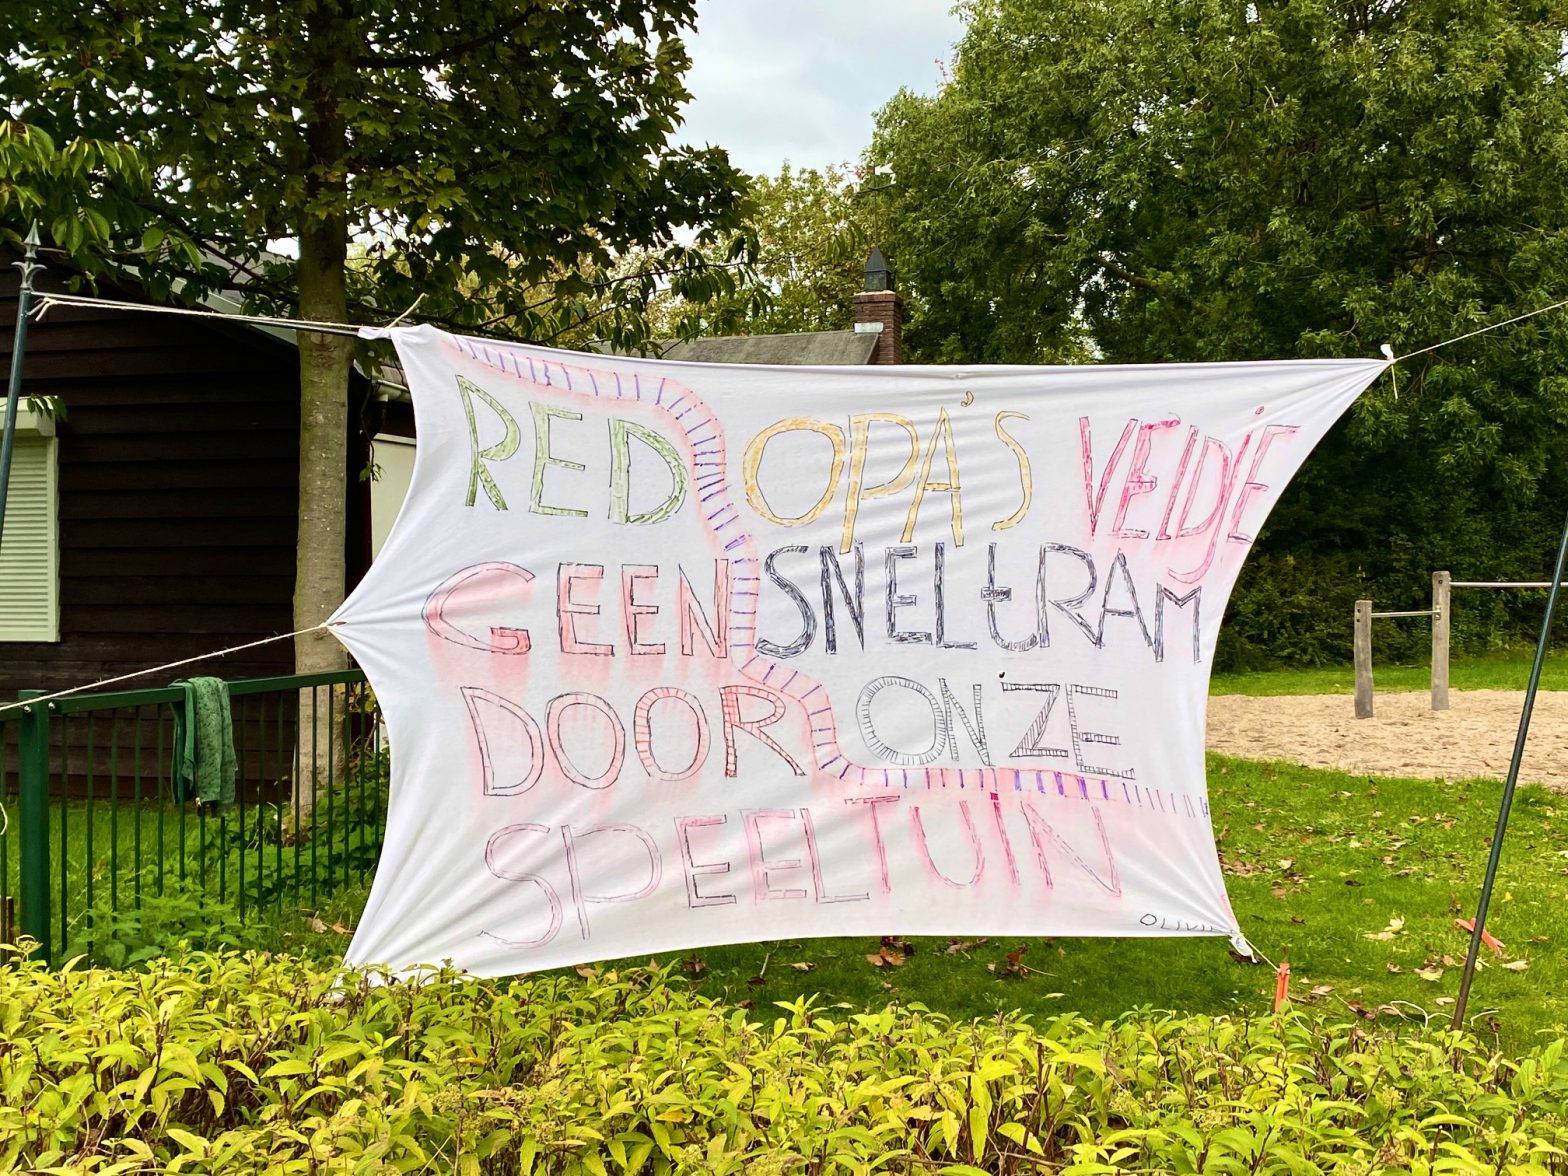 RED OPA'S VEIDJE
GEEN SNELTRAM
DOOR ONZE
SPEELTUIN